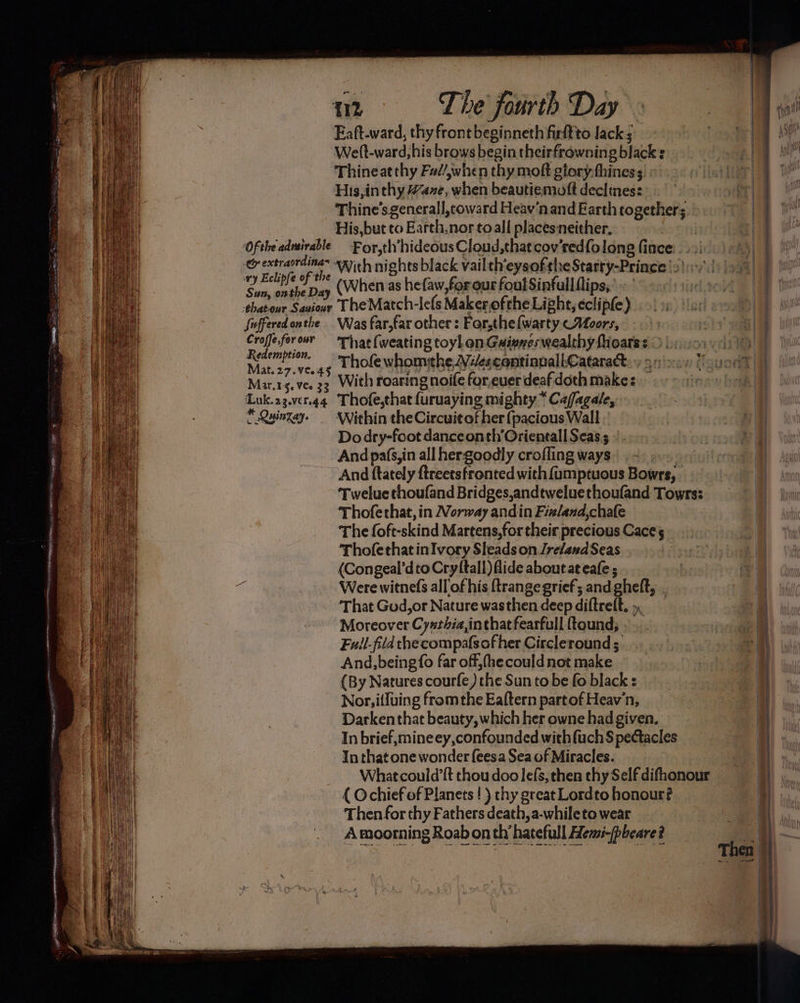 112 The fourth Day
Eaſt-ward, thy front beginneth firſt to lack;
Weſt-ward, his brows begin their frowning black:
Thine at thy Full, when thy moſt glory ſhines;
His, in thy Wane, when beautie moſt declines:
Thine's generall, toward Heav'n and Earth together;
His, but to Earth, nor to all places neither.
Of the admirable & extraordinary Eclipſe of the Sun, on the Day that our Saviour ſuffered on the Croſſe, for our Redemption.
Mat. 27. ve. 45
Mar. 15. ve. 33
Luk. 23. ver. 44
For, th' hideous Cloud, that cov'red ſo long ſince
With nights black vail th' eys of the Starry-Prince
(When as he ſaw, for our foul Sinfull ſlips,
The Match-leſs Maker of the Light, eclipſe)
Was far, far other: For, the ſwarty Moors,
That ſweating toyl on Guinnés wealthy ſhoars:
Thoſe whom the Niles continuall Cataract
With roaring noiſe for euer deaf doth make:
Thoſe, that ſuruaying mighty * Caſſagale,
* Quinzay.
Within the Circuit of her ſpacious Wall
Do dry-foot dance on th' Orientall Seas;
And paſs, in all her goodly croſſing ways
And ſtately ſtreets fronted with ſumptuous Bowrs,
Twelue thouſand Bridges, and twelue thouſand Towrs:
Thoſe that, in Norway and in Finland, chaſe
The ſoft-skind Martens, for their precious Cace;
Thoſe that in Ivory Sleads on Ireland Seas
(Congeal'd to Cryſtall) ſlide about at eaſe;
Were witneſs all of his ſtrange grief; and gheſt,
That God, or Nature was then deep diſtreſt.
Moreover Cynthia, in that fearfull ſtound,
Full-fild the compaſs of her Circle round;
And, being ſo far off, ſhe could not make
(By Natures courſe) the Sun to be ſo black:
Nor, iſſuing from the Eaſtern part of Heav'n,
Darken that beauty, which her owne had given.
In brief, mine ey, confounded with ſuch Spectacles
In that one wonder ſees a Sea of Miracles.
What could'ſt thou doo leſs, then thy Self diſhonour
(O chief of Planets!) thy great Lord to honour?
Then for thy Fathers death, a-while to wear
A moorning Roab on th' hatefull Hemi-ſpheare?
Then